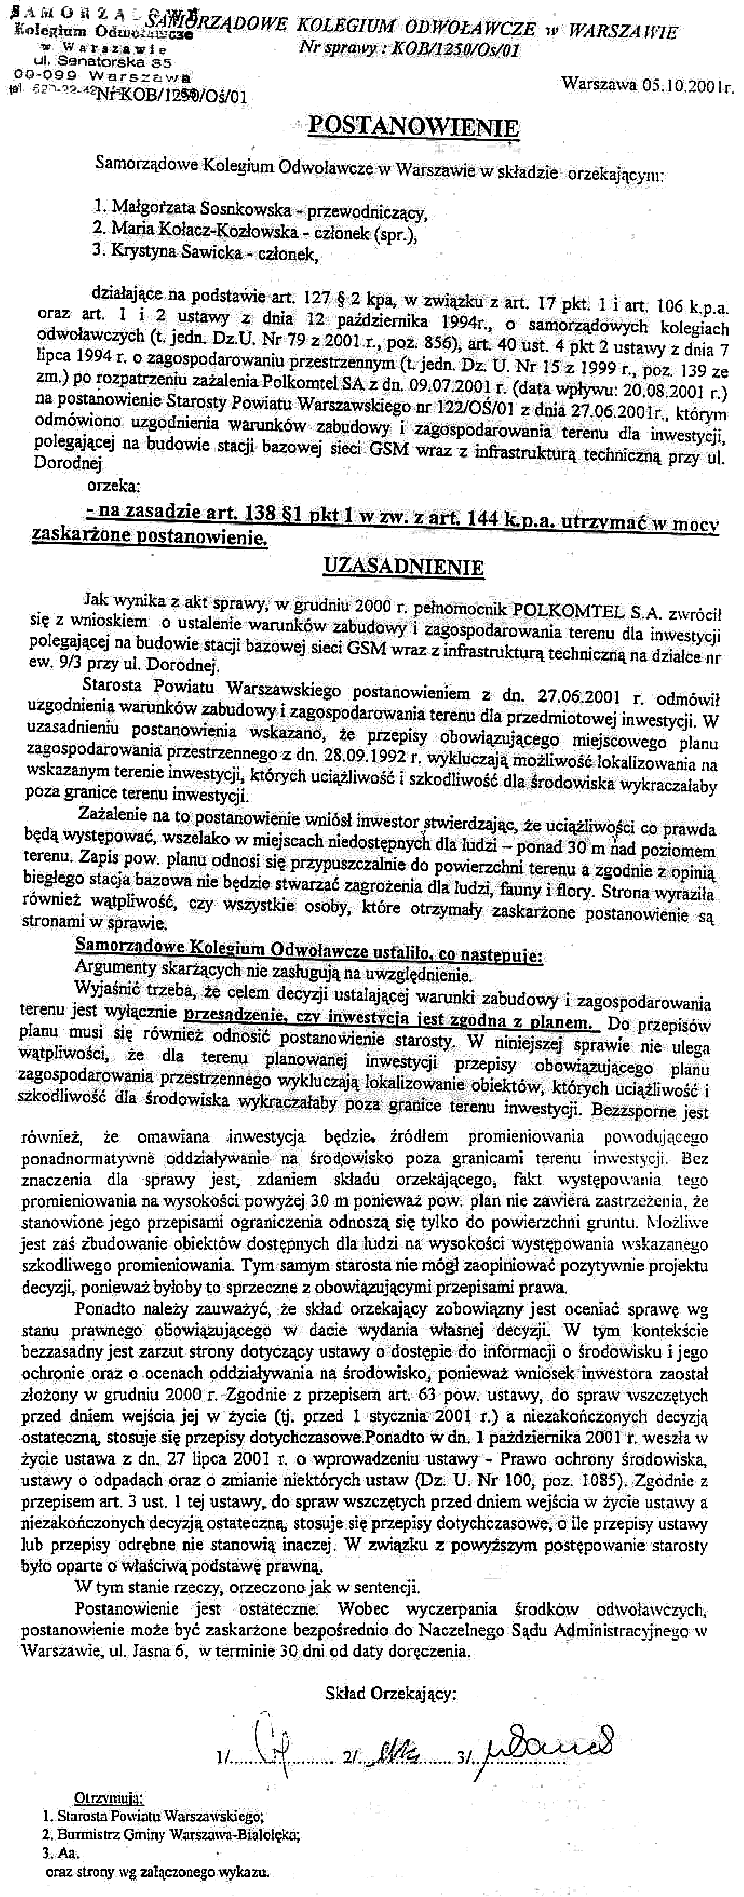 SAMORZĄDOWE
Kolegium Odwoławcze
w Warszawie
ul. Senatorska 35
00-099 Warszawa
SAMORZĄDOWE KOLEGIUM ODWOŁAWCZE w WARSZAWIE
Nr sprawy : KOB/1250/Os/01
Nr KOB/1250/Oś/01
Warszawa 05.10.2001r.
POSTANOWIENIE
Samorządowe Kolegium Odwoławcze w Warszawie w składzie orzekającym:
1. Małgorzata Sosnkowska - przewodniczący,
2. Maria Kołacz-Kozłowska - członek (spr.),
3. Krystyna Sawicka - członek,
działające na podstawie art. 127 § 2 kpa, w związku z art. 17 pkt. 1 i art. 106 k.p.a.
oraz art. 1 i 2 ustawy z dnia 12 października 1994r., o samorządowych kolegiach
odwoławczych (t. jedn. Dz.U. Nr 79 z 2001 r., poz. 856), art. 40 ust. 4 pkt 2 ustawy z dnia 7
lipca 1994 r. o zagospodarowaniu przestrzennym (t. jedn. Dz. U. Nr 15 z 1999 r., poz. 139 ze
zm.) po rozpatrzeniu zażalenia Polkomtel SA z dn. 09.07.2001 r. (data wpływu: 20.08.2001 r.)
na postanowienie Starosty Powiatu Warszawskiego nr 122/OŚ/01 z dnia 27.06.2001r., którym
odmówiono uzgodnienia warunków zabudowy i zagospodarowania terenu dla inwestycji,
polegającej na budowie stacji bazowej sieci GSM wraz z infrastrukturą techniczną przy ul.
Dorodnej
orzeka:
- na zasadzie art. 138 §1 pkt 1 w zw. z art. 144 k.p.a. utrzymać w mocy
zaskarżone postanowienie.
UZASADNIENIE
Jak wynika z akt sprawy, w grudniu 2000 r. pełnomocnik POLKOMTEL S.A. zwrócił
się z wnioskiem o ustalenie warunków zabudowy i zagospodarowania terenu dla inwestycji
polegającej na budowie stacji bazowej sieci GSM wraz z infrastrukturą techniczną na działce nr
ew. 9/3 przy ul. Dorodnej.
Starosta Powiatu Warszawskiego postanowieniem z dn. 27.06.2001 r. odmówił
uzgodnienia warunków zabudowy i zagospodarowania terenu dla przedmiotowej inwestycji. W
uzasadnieniu postanowienia wskazano, że przepisy obowiązującego miejscowego planu
zagospodarowania przestrzennego z dn. 28.09.1992 r. wykluczają możliwość lokalizowania na
wskazanym terenie inwestycji, których uciążliwość i szkodliwość dla środowiska wykraczałaby
poza granice terenu inwestycji.
Zażalenie na to postanowienie wniósł inwestor stwierdzając, że uciążliwości co prawda
będą występować, wszelako w miejscach niedostępnych dla ludzi – ponad 30 m nad poziomem
terenu. Zapis pow. planu odnosi się przypuszczalnie do powierzchni terenu a zgodnie z opinią
biegłego stacja bazowa nie będzie stwarzać zagrożenia dla ludzi, fauny i flory. Strona wyraziła
również wątpliwość, czy wszystkie osoby, które otrzymały zaskarżone postanowienie są
stronami w sprawie.
Samorządowe Kolegium Odwoławcze ustaliło, co następuje:
Argumenty skarżących nie zasługują na uwzględnienie.
Wyjaśnić trzeba, że celem decyzji ustalającej warunki zabudowy i zagospodarowania
terenu jest wyłącznie przesądzenie, czy inwestycja jest zgodna z planem. Do przepisów
planu musi się również odnosić postanowienie starosty. W niniejszej sprawie nie ulega
wątpliwości, że dla terenu planowanej inwestycji przepisy obowiązującego planu
zagospodarowania przestrzennego wykluczają lokalizowanie obiektów, których uciążliwość i
szkodliwość dla środowiska wykraczałaby poza granice terenu inwestycji. Bezzsporne jest
również, że omawiana inwestycja będzie źródłem promieniowania powodującego
ponadnormatywne oddziaływanie na środowisko poza granicami terenu inwestycji. Bez
znaczenia dla sprawy jest, zdaniem składu orzekającego, fakt występowania tego
promieniowania na wysokości powyżej 30 m ponieważ pow. plan nie zawiera zastrzeżenia, że
stanowione jego przepisami ograniczenia odnoszą się tylko do powierzchni gruntu. Możliwe
jest zaś zbudowanie obiektów dostępnych dla ludzi na wysokości występowania wskazanego
szkodliwego promieniowania. Tym samym starosta nie mógł zaopiniować pozytywnie projektu
decyzji, ponieważ byłoby to sprzeczne z obowiązującymi przepisami prawa.
Ponadto należy zauważyć, że skład orzekający zobowiązny jest oceniać sprawę wg
stanu prawnego obowiązującego w dacie wydania własnej decyzji. W tym kontekście
bezzasadny jest zarzut strony dotyczący ustawy o dostępie do informacji o środowisku i jego
ochronie oraz o ocenach oddziaływania na środowisko, ponieważ wniosek inwestora zaostał
złożony w grudniu 2000 r. Zgodnie z przepisem art. 63 pow. ustawy, do spraw wszczętych
przed dniem wejścia jej w życie (tj. przed 1 stycznia 2001 r.) a niezakończonych decyzją
ostateczną, stosuje się przepisy dotychczasowe.Ponadto w dn. 1 października 2001 r. weszła w
życie ustawa z dn. 27 lipca 2001 r. o wprowadzeniu ustawy - Prawo ochrony środowiska,
ustawy o odpadach oraz o zmianie niektórych ustaw (Dz. U. Nr 100, poz. 1085). Zgodnie z
przepisem art. 3 ust. 1 tej ustawy, do spraw wszczętych przed dniem wejścia w życie ustawy a
niezakończonych decyzją ostateczną, stosuje się przepisy dotychczasowe, o ile przepisy ustawy
lub przepisy odrębne nie stanowią inaczej. W związku z powyższym postępowanie starosty
było oparte o właściwą podstawę prawną.
W tym stanie rzeczy, orzeczono jak w sentencji.
Postanowienie jest ostateczne. Wobec wyczerpania środków odwoławczych,
postanowienie może być zaskarżone bezpośrednio do Naczelnego Sądu Administracyjnego w
Warszawie, ul. Jasna 6, w terminie 30 dni od daty doręczenia.
Skład Orzekający:
1/.................. 2/.................. 3/..................
Otrzymują:
1. Starosta Powiatu Warszawskiego;
2. Burmistrz Gminy Warszawa-Białołęka;
3. Aa.
oraz strony wg załączonego wykazu.